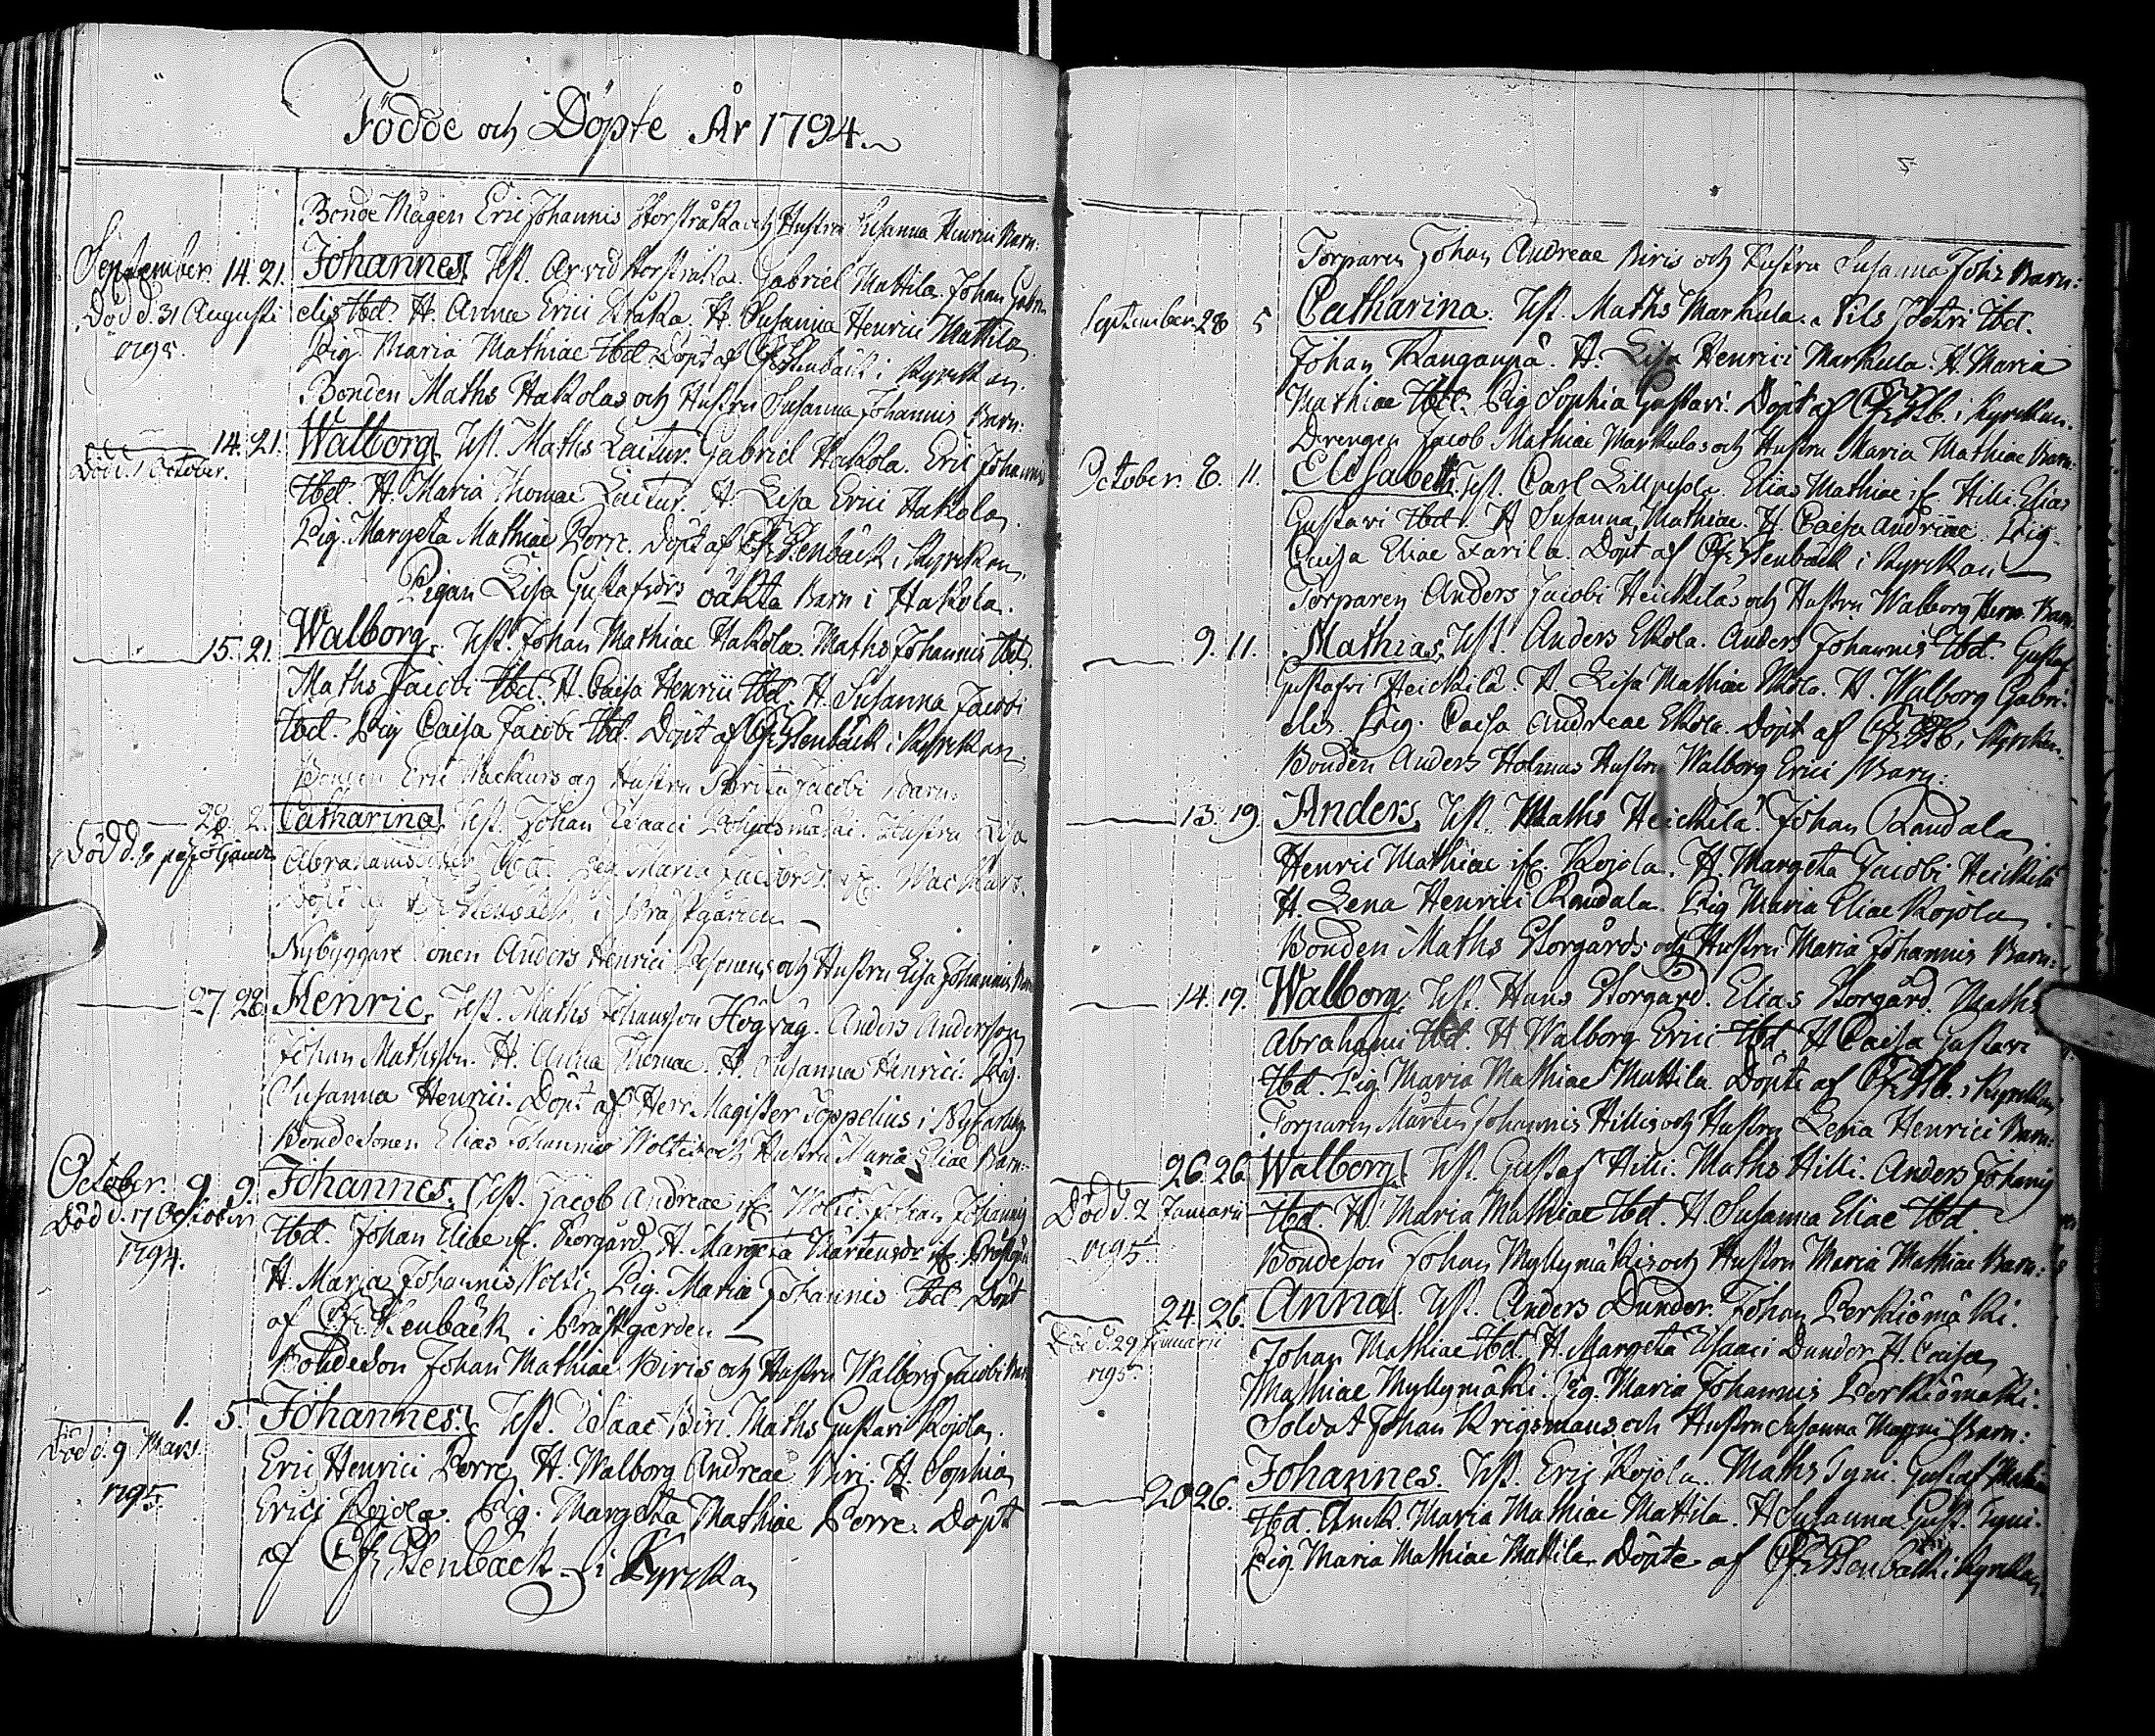 Födde och Döpte År 1794.
Bonde Mågen Eric Johannis Storstråka och Hustru Susanna Henrici Barn:
September. 14. 21. Johannes. Test. Arvid Storstråka. Gabriel Mattila. Johan Gabri-
Död d. 31 Augusti elis Ibd. H. Anna Erici Stråka. H. Susanna Henrici Mattila
1795. Pig. Maria Mathiae Ibd. Döpt af Cfr. Stenbäck i Kyrckan.
Bonden Maths Hakolas och Hustru Susanna Johannis Barn:
14. 21. Walborg. Test. Maths Laitur. Gabriel Hakola. Eric Johannis
Död d. 1 October. Ibd. H. Maria Thomae Laitur. H. Lisa Erici Hakola.
Pig. Margeta Mathiae Porre. Döpt af Cfr. Stenbäck i Kyrckan.
Pigan Lisa Gustafsdrs oäkta Barn i Hakola.
15. 21. Walborg. Test. Johan Mathiae Hakola. Maths Johannis Ibd.
Maths Jacobi Ibd. H. Caisa Henrici Ibd. H. Susanna Jacobi
Ibd. Pig Caisa Jacobi Ibd. Döpt af Cfr. Stenbäck i Kyrckan.
Bonden Eric Mackars och Hustru Jacobi Barn:
28. 2. Catharina. Test. Johan Isaaci Hustru Lisa
Död d. Abrahamsdotter Ibd. Pig Maria Jacobsdr Mackars.
Döpt af Cfr. Stenbäck i Prästgården
Nybyggare Sonen Anders Henrici Pesonens och Hustru Lisa Johannis Barn
27 28. Henric. Test. Maths Johansson Högväg. Anders Andersson
Johan Mathsson. H. Anna Thomae. H. Susanna Henrici. Pig.
Susanna Henrici. Döpt af Herr Magister Toppelius i Nykarleby.
Bondesonen Elias Johannis Woltis och Hustru Maria Eliae Barn:
October. 9 9. Johannes. Test. Jacob Andreae Wolti. Johan Johannis
Död d. 17 October Ibd. Johan Eliae Storgård. H. Margeta Mårtensdr
1794. H. Maria Johannis Wolti. Pig. Maria Johannis Ibd. Döpt
af Cfr. Stenbäck i Prästgården
Bondeson Johan Mathiae Biris och Hustru Walborg Jacobi Barn
1. 5. Johannes. Test. Isaac Biri. Maths Gustavi Rojola.
Död d. 9 Mars Eric Henrici Porre. H. Walborg Andreae Biri. H. Sophia
1795. Erici Rojola. Pig. Margeta Mathiae Porre. Döpt
af Cfr. Stenbäck i Kyrckan
Torparen Johan Andreae Biris och Hustru Susanna Joh: Barn:
September. 28 5 Catharina. Test. Maths Markula. Nils Petri Ibd.
Johan Kanganpä. H. Lisa Henrici Markula. H. Maria
Mathiae Ibd. Pig Sophia Gustavi. Döpt af Cfr. Stb. i Kyrckan.
Drengen Jacob Mathiae Markulas och Hustru Maria Mathiae Barn:
October. 8. 11. Elisabeth. Test. Carl Lillpesola. Elias Mathiae Hilli. Elias
Gustavi Ibd. H Susanna Mathiae. H. Caisa Andreae. Pig.
Caisa Eliae Farila. Döpt af Cfr. Stenbäck i Kyrckan
Torparen Anders Jacobi Heickiläs och Hustru Walborg Barn.
9. 11. Mathias. Test. Anders Ekola. Anders Johannis Ibd. Gustaf
Gustafvi Heickilä. H Lisa Mathiae Ekola. H. Walborg Gabri-
elis. Pig. Caisa Andreae Ekola. Döpt af Cfr. Stb. i Kyrckan.
Bonden Anders Holmas Hustru Walborg Erici Barn:
13. 19. Anders. Test. Maths Heickilä. Johan Randala.
Henric Mathiae Rojola. H. Margeta Jacobi Heickilä
H. Lena Henrici Randala. Pig Maria Eliae Rojola.
Bonden Maths Storgårds och Hustru Maria Johannis Barn:
14. 19. Walborg. Test. Hans Storgård. Elias Storgård. Maths
Abrahami Ibd. H Walborg Erici Ibd H Caisa Gustavi
Ibd. Pig. Maria Mathiae Mattila. Döpte af Cfr. Stb. i Kyrckan
Torparen Mårten Johannis Hillis och Hustru Lena Henrici Barn:
26. 26. Walborg. Test. Gustaf Hilli. Maths Hilli. Anders Johannis
Död d. 2 Januarii Ibd. H. Maria Mathiae Ibd. H. Susanna Eliae Ibd.
1795. Bondeson Johan Myllymäkis och Hustru Maria Mathiae Barn:
24. 26. Anna. Test. Anders Dunder. Johan Perkiömäki.
Död d. 29 Januarii Johan Mathiae Ibd. H. Margeta Isaaci Dunder. H. Caisa
1795. Mathiae Myllymäki. Pig. Maria Johannis Perkiömäki.
Soldat Johan Krigsmans och Hustru Susanna Magni Barn:
20 26. Johannes. Test. Eric Rojola. Maths Tyni. Gustaf
Ibd. Maria Mathiae Mattila. H Susanna Gust. Tyni.
Pig. Maria Mathiae Mattila. Döpte af Cfr. Stenbäck i Kyrckan.